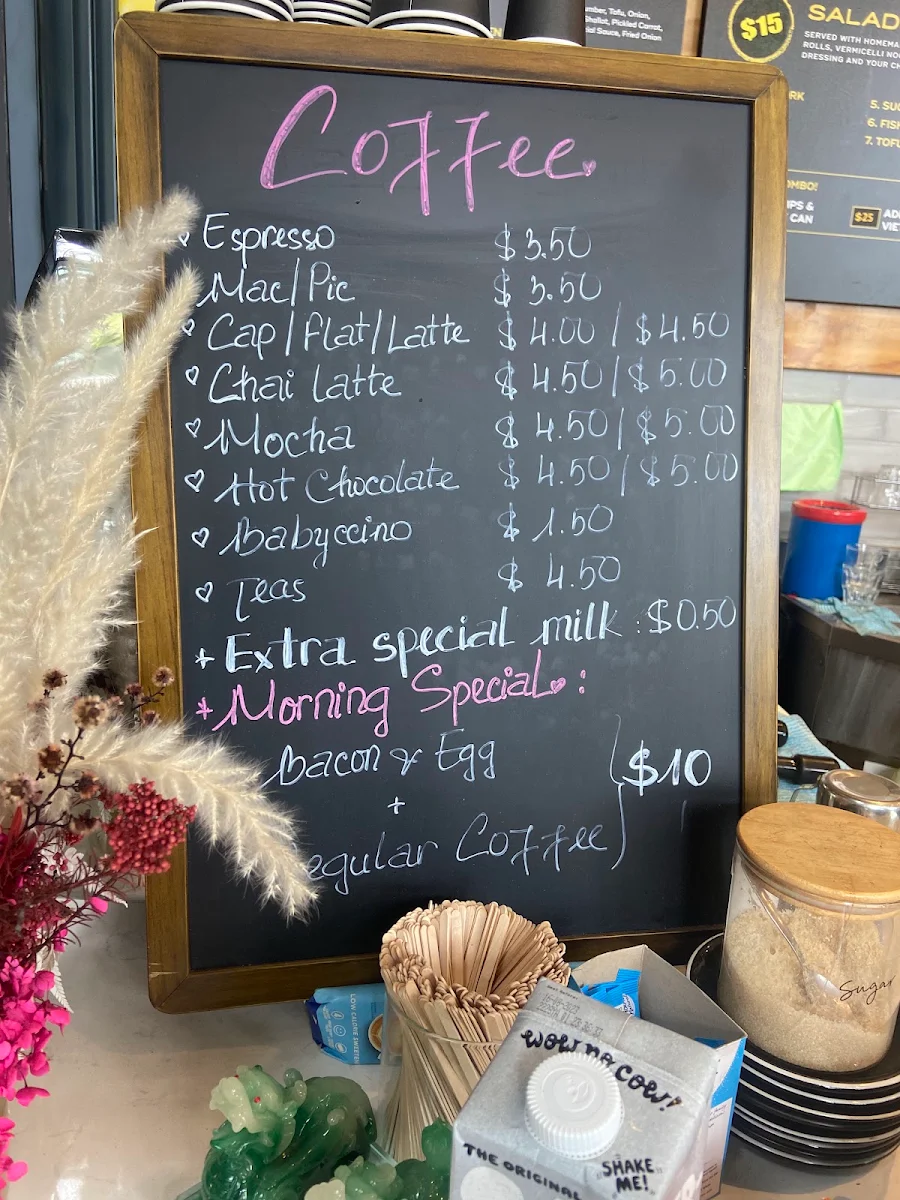 Coffee
Espresso $3.50
Mac/Pic $3.50
Cap/Flat/Latte $4.00/$4.50
Chai Latte $4.50/$5.00
Mocha $4.50/$5.00
Hot Chocolate $4.50/$5.00
Babyccino $1.50
Teas $4.50
+ Extra special milk : $0.50
* Morning Special :
Bacon & Egg
+
egular Coffee
$10
Tofu, Onion,
Pickled Carrot,
Sauce, Fried Onion
$15
SALAD
SERVED WITH HOMEMA
ROLLS, VERMICELLI NOO
DRESSING AND YOUR CH
RK
5. SUG
6. FISH
7. TOFU
OMBO!
IPS &
CAN
$25
AD
VIET
Sugar
LOW CALORIE SWEETEN
WOW NO COW!
THE ORIGINAL
SHAKE
ME!